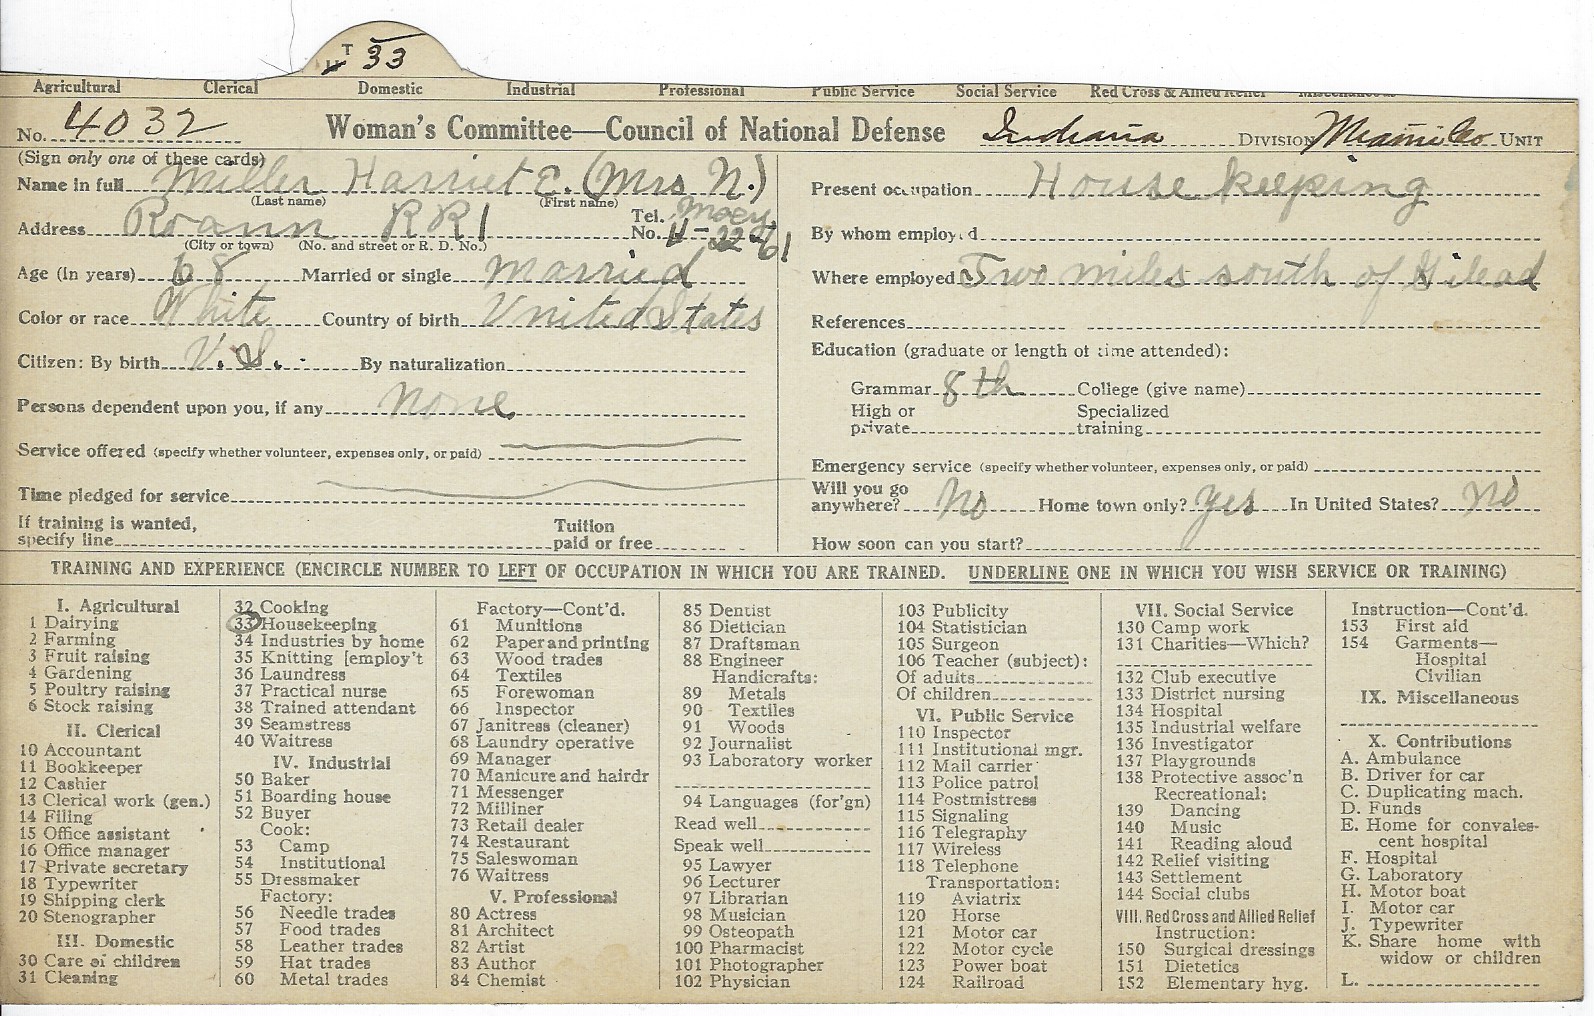 T 33
Agricultural Clerical Domestic Industrial Professional Public Service Social Service Red Cross & Allied Relief Miscellaneous
No. 4032 Woman's Committee—Council of National Defense Indiana DIVISION Miami Co. UNIT
(Sign only one of these cards)
Name in full Miller Harriet E. (Mrs N.)
(Last name) (First name)
Address Roann RR1 Tel. No. 4-22-61
(City or town) (No. and street or R. D. No.)
Age (in years) 68 Married or single Married
Color or race White Country of birth United States
Citizen: By birth U.S. By naturalization
Persons dependent upon you, if any none
Service offered (specify whether volunteer, expenses only, or paid)
Time pledged for service
If training is wanted, specify line Tuition paid or free
Present occupation House keeping
By whom employed
Where employed Two miles south of Gilead
References
Education (graduate or length of time attended):
Grammar 8th College (give name)
High or private Specialized training
Emergency service (specify whether volunteer, expenses only, or paid)
Will you go anywhere? No Home town only? yes In United States? no
How soon can you start?
TRAINING AND EXPERIENCE (ENCIRCLE NUMBER TO LEFT OF OCCUPATION IN WHICH YOU ARE TRAINED. UNDERLINE ONE IN WHICH YOU WISH SERVICE OR TRAINING)
I. Agricultural
1 Dairying
2 Farming
3 Fruit raising
4 Gardening
5 Poultry raising
6 Stock raising
II. Clerical
10 Accountant
11 Bookkeeper
12 Cashier
13 Clerical work (gen.)
14 Filing
15 Office assistant
16 Office manager
17 Private secretary
18 Typewriter
19 Shipping clerk
20 Stenographer
III. Domestic
30 Care of children
31 Cleaning
32 Cooking
33 Housekeeping
34 Industries by home
35 Knitting [employ't
36 Laundress
37 Practical nurse
38 Trained attendant
39 Seamstress
40 Waitress
IV. Industrial
50 Baker
51 Boarding house
52 Buyer
Cook:
53 Camp
54 Institutional
55 Dressmaker
Factory:
56 Needle trades
57 Food trades
58 Leather trades
59 Hat trades
60 Metal trades
Factory—Cont'd.
61 Munitions
62 Paper and printing
63 Wood trades
64 Textiles
65 Forewoman
66 Inspector
67 Janitress (cleaner)
68 Laundry operative
69 Manager
70 Manicure and hairdr
71 Messenger
72 Milliner
73 Retail dealer
74 Restaurant
75 Saleswoman
76 Waitress
V. Professional
80 Actress
81 Architect
82 Artist
83 Author
84 Chemist
85 Dentist
86 Dietician
87 Draftsman
88 Engineer
Handicrafts:
89 Metals
90 Textiles
91 Woods
92 Journalist
93 Laboratory worker
94 Languages (for'gn)
Read well
Speak well
95 Lawyer
96 Lecturer
97 Librarian
98 Musician
99 Osteopath
100 Pharmacist
101 Photographer
102 Physician
103 Publicity
104 Statistician
105 Surgeon
106 Teacher (subject):
Of adults
Of children
VI. Public Service
110 Inspector
111 Institutional mgr.
112 Mail carrier
113 Police patrol
114 Postmistress
115 Signaling
116 Telegraphy
117 Wireless
118 Telephone
Transportation:
119 Aviatrix
120 Horse
121 Motor car
122 Motor cycle
123 Power boat
124 Railroad
VII. Social Service
130 Camp work
131 Charities—Which?
132 Club executive
133 District nursing
134 Hospital
135 Industrial welfare
136 Investigator
137 Playgrounds
138 Protective assoc'n
Recreational:
139 Dancing
140 Music
141 Reading aloud
142 Relief visiting
143 Settlement
144 Social clubs
VIII. Red Cross and Allied Relief
Instruction:
150 Surgical dressings
151 Dietetics
152 Elementary hyg.
Instruction—Cont'd.
153 First aid
154 Garments—
Hospital
Civilian
IX. Miscellaneous
X. Contributions
A. Ambulance
B. Driver for car
C. Duplicating mach.
D. Funds
E. Home for convales-
cent hospital
F. Hospital
G. Laboratory
H. Motor boat
I. Motor car
J. Typewriter
K. Share home with
widow or children
L.